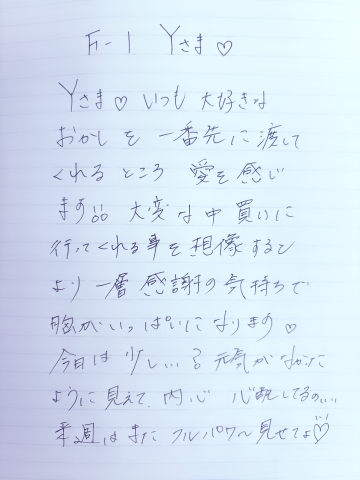 F-1 Yさま♡
Yさま♡ いつも 大好きな
おかし を 一番先に 渡して
くれる ところ 愛を 感じ
ます 大変な中 買いに
行ってくれる事を想像すると
より 一層 感謝の気持ちで
胸がいっぱいになります♡
今日は 少し… 元気がなかった
ように見えて、内心 心配してるの…
来週は また フルパワー見せてょ♡